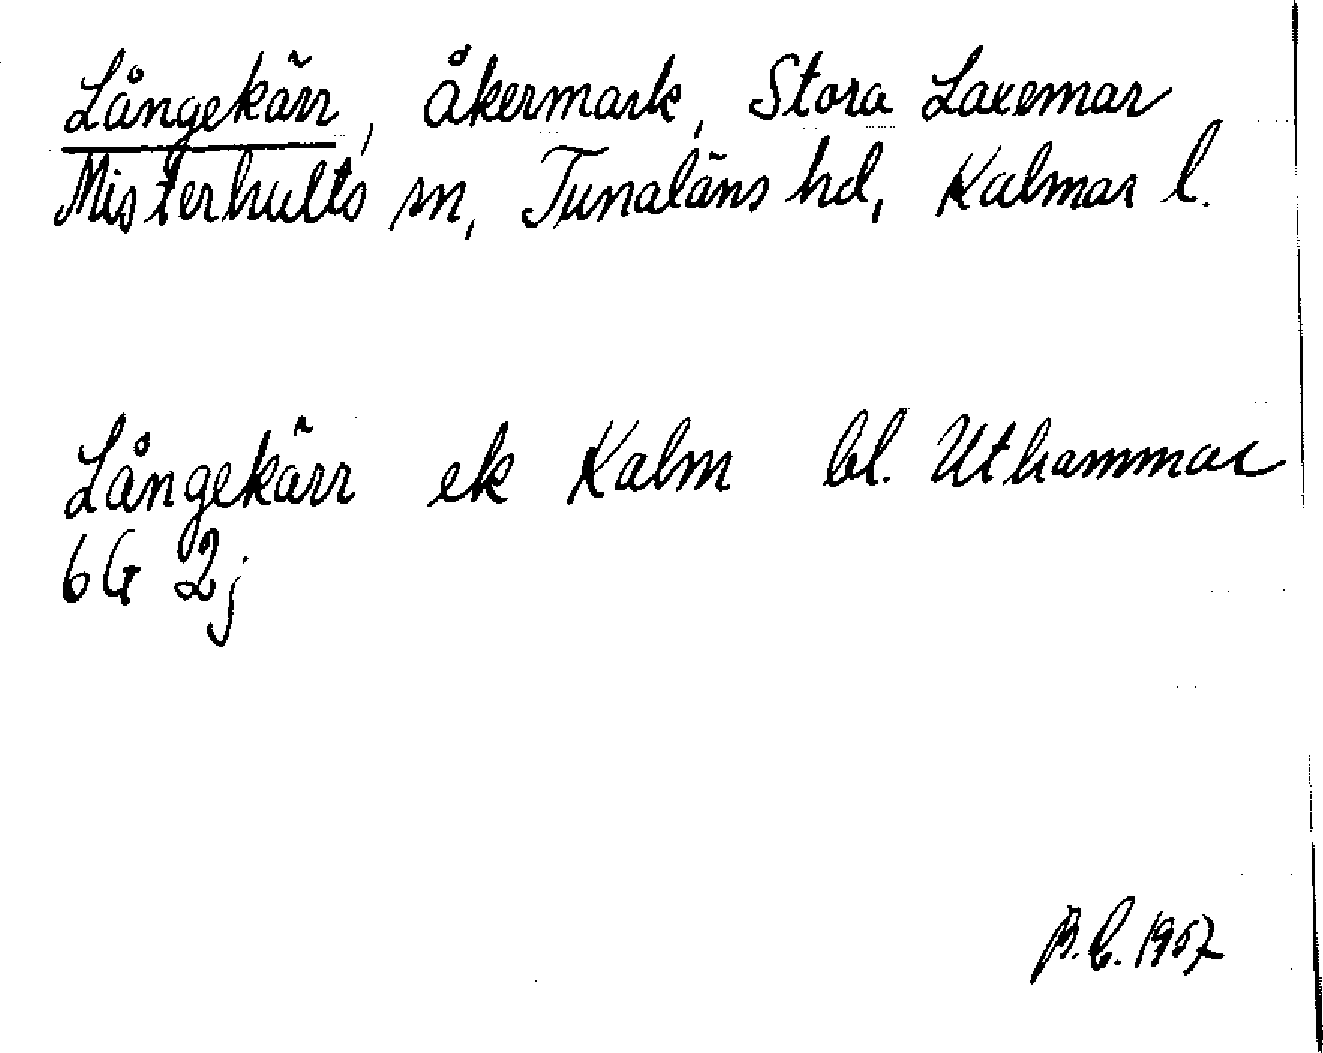 Långekärr, åkermark, Stora Laxemar
Misterhults sn, Tunaläns hd, Kalmar l.
Långekärr ek Kalm bl. Uthammar
6G 2j
B.C. 1967